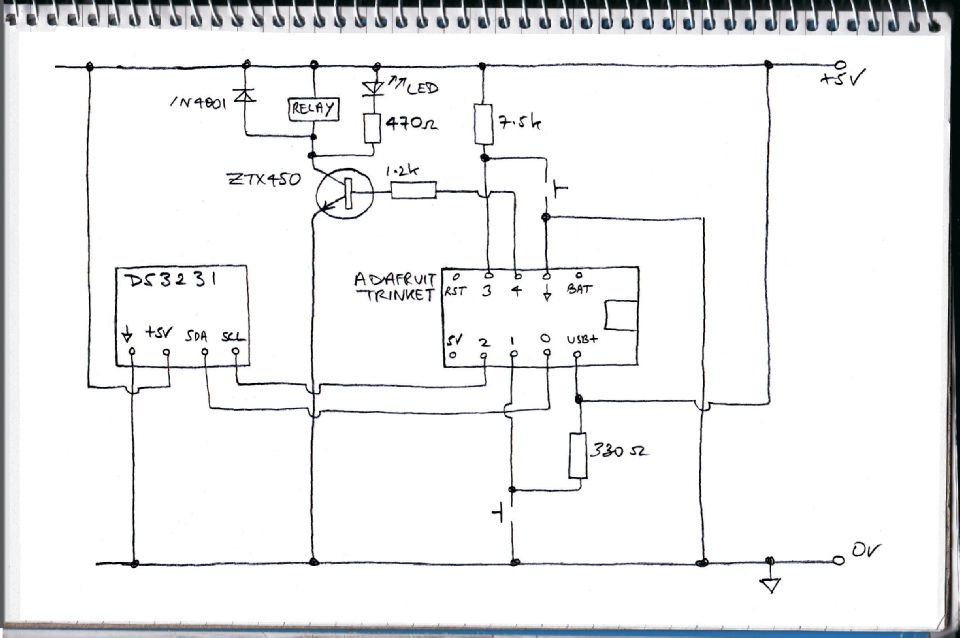 +5V
1N4001
RELAY
LED
470Ω
7.5k
ZTX450
1.2k
DS3231
+5V SDA SCL
ADAFRUIT
TRINKET
RST 3 4 BAT
5V 2 1 0 USB+
330Ω
0V